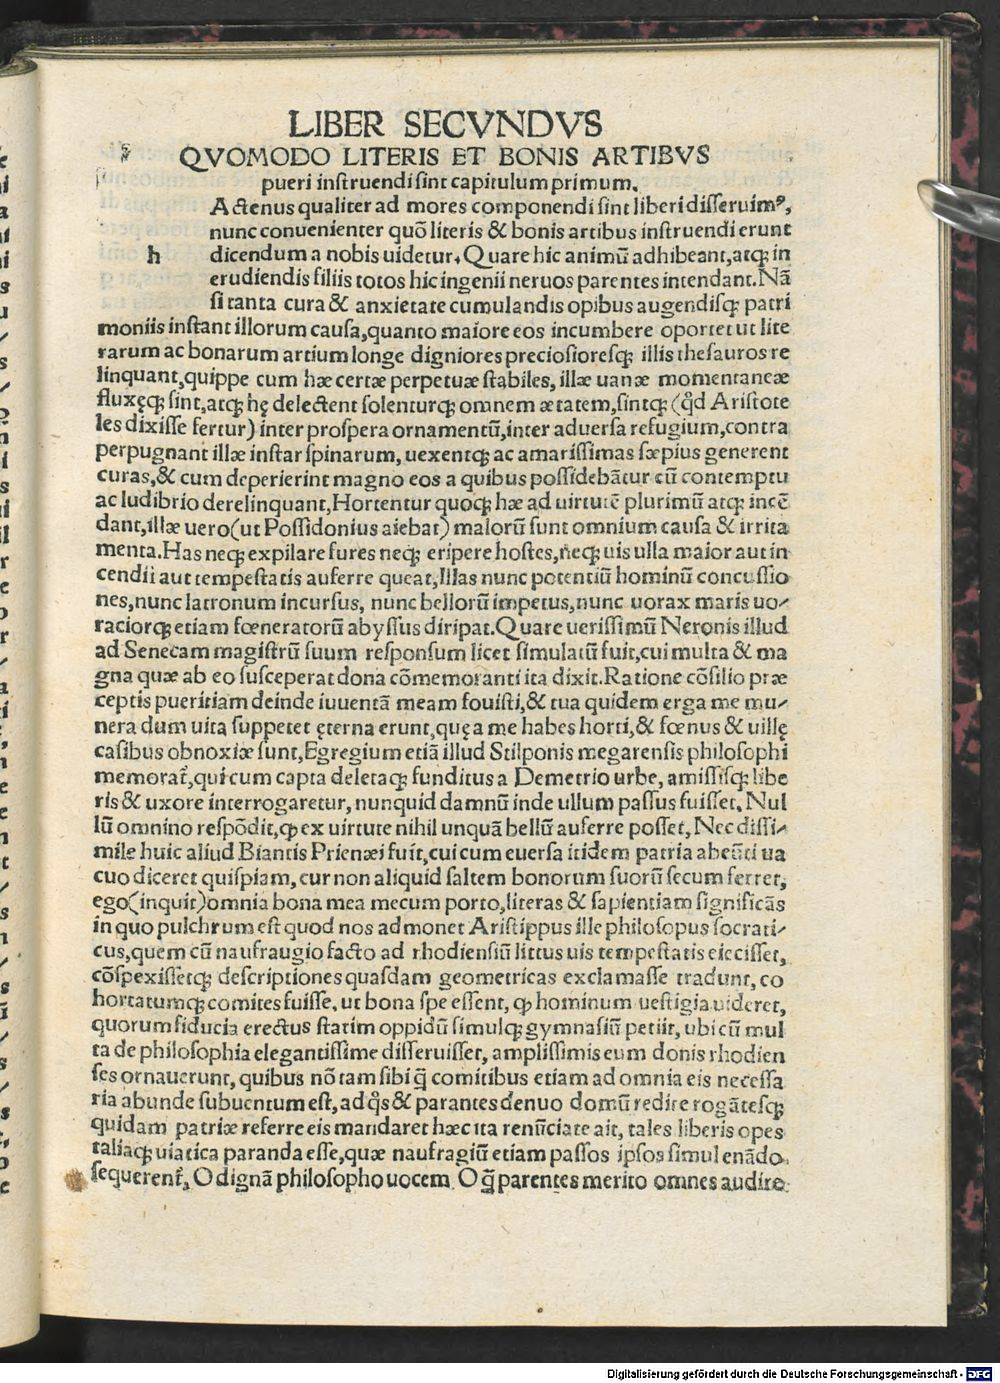 LIBER SECVNDVS
QVOMODO LITERIS ET BONIS ARTIBVS
pueri inſtruendi ſint capitulum primum.
Actenus qualiter ad mores componendi ſint liberi diſſeruimꝰ,
nunc conuenienter quō literis & bonis artibus inſtruendi erunt
h dicendum a nobis uidetur. Quare hic animū adhibeant,atqꝫ in
erudiendis filiis totos hic ingenii neruos parentes intendant.Nā
ſi tanta cura & anxietate cumulandis opibus augendiſqꝫ patri
moniis inſtant illorum cauſa,quanto maiore eos incumbere oportet ut lite
rarum ac bonarum artium longe digniores precioſioreſqꝫ illis theſauros re
linquant,quippe cum hæ certæ perpetuæ ſtabiles, illæ uanæ momentaneæ
fluxęqꝫ ſint,atqꝫ hę delectent ſolenturqꝫ omnem ætatem,ſintqꝫ (qd̊ Ariſtote
les dixiſſe fertur) inter proſpera ornamentū,inter aduerſa refugium,contra
perpugnant illæ inſtar ſpinarum, uexentqꝫ ac amariſſimas ſæpius generent
curas,& cum deperierint magno eos a quibus poſſidebātur cū contemptu
ac ludibrio derelinquant,Hortentur quoqꝫ hæ ad uirtutē plurimū atqꝫ incē
dant,illæ uero(ut Poſſidonius aiebat) malorū ſunt omnium cauſa & irrita
menta.Has neqꝫ expilare fures neqꝫ eripere hoſtes,neqꝫ uis ulla maior aut in
cendii aut tempeſtatis auferre queat,Illas nunc potentiū hominū concuſſio
nes,nunc latronum incurſus, nunc bellorū impetus,nunc uorax maris uo⸗
raciorqꝫ etiam fœneratorū abyſſus diripat.Quare ueriſſimū Neronis illud
ad Senecam magiſtrū ſuum reſponſum licet ſimulatū fuit,cui multa & ma
gna quæ ab eo ſuſceperat dona cōmemoranti ita dixit.Ratione cōſilio præ
ceptis pueritiam deinde iuuentā meam fouiſti,& tua quidem erga me mu⸗
nera dum uita ſuppetet ęterna erunt,quę a me habes horti,& fœnus & uillę
caſibus obnoxiæ ſunt,Egregium etiā illud Stilponis megarenſis philoſophi
memorat̄,qui cum capta deletaqꝫ funditus a Demetrio urbe, amiſſiſqꝫ libe
ris & uxore interrogaretur, nunquid damnū inde ullum paſſus fuiſſet. Nul
lū omnino reſpōdit,ꝙ ex uirtute nihil unquā bellū auferre poſſet, Nec diſſi⸗
mile huic aliud Biantis Prienæi fuit,cui cum euerſa itidem patria abeūti ua
cuo diceret quiſpiam, cur non aliquid ſaltem bonorum ſuorū ſecum ferret,
ego(inquit)omnia bona mea mecum porto,literas & ſapientiam ſignificās
in quo pulchrum eſt quod nos admonet Ariſtippus ille philoſopus ſocrati⸗
cus,quem cū naufragio facto ad rhodienſiū littus uis tempeſtatis eieciſſet,
cōſpexiſſetqꝫ deſcriptiones quaſdam geometricas exclamaſſe tradunt, co
hortatumqꝫ comites fuiſſe, ut bona ſpe eſſent, ꝙ hominum ueſtigia uideret,
quorum fiducia erectus ſtatim oppidū ſimulqꝫ gymnaſiū petiit, ubi cū mul
ta de philoſophia elegantiſſime diſſeruiſſet, ampliſſimis eum donis rhodien
ſes ornauerunt, quibus nō tam ſibi q̄ comitibus etiam ad omnia eis neceſſa
ria abunde ſubuentum eſt, ad q̊s & parantes denuo domū redire rogāteſqꝫ
quidam patriæ referre eis mandaret hæc ita renūciate ait, tales liberis opes
taliaqꝫ uiatica paranda eſſe,quæ naufragiū etiam paſſos ipſos ſimul enādo
ſequerent̄, O dignā philoſopho uocem O q̄ parentes merito omnes audire
Digitalisierung gefördert durch die Deutsche Forschungsgemeinschaft - DFG